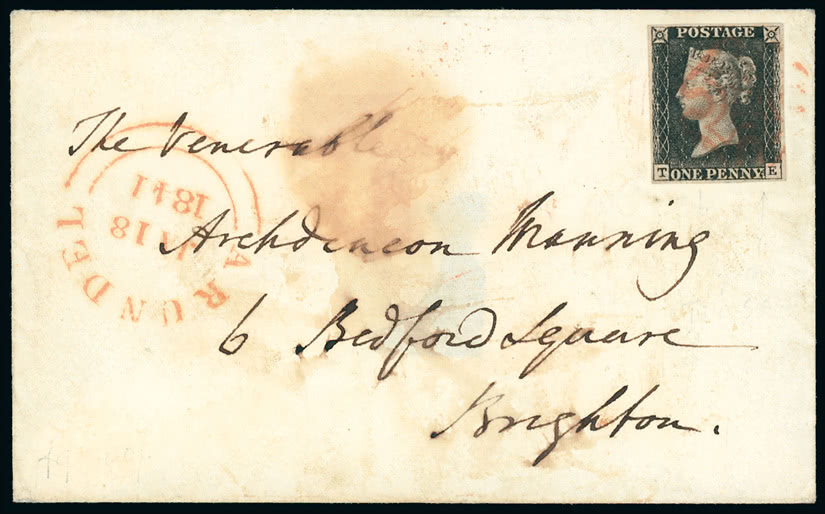 POSTAGE
T ONE PENNY E
The Venerable
Archdeacon Manning
6 Bedford Square
Brighton.
ARUNDEL
JA 18
1841